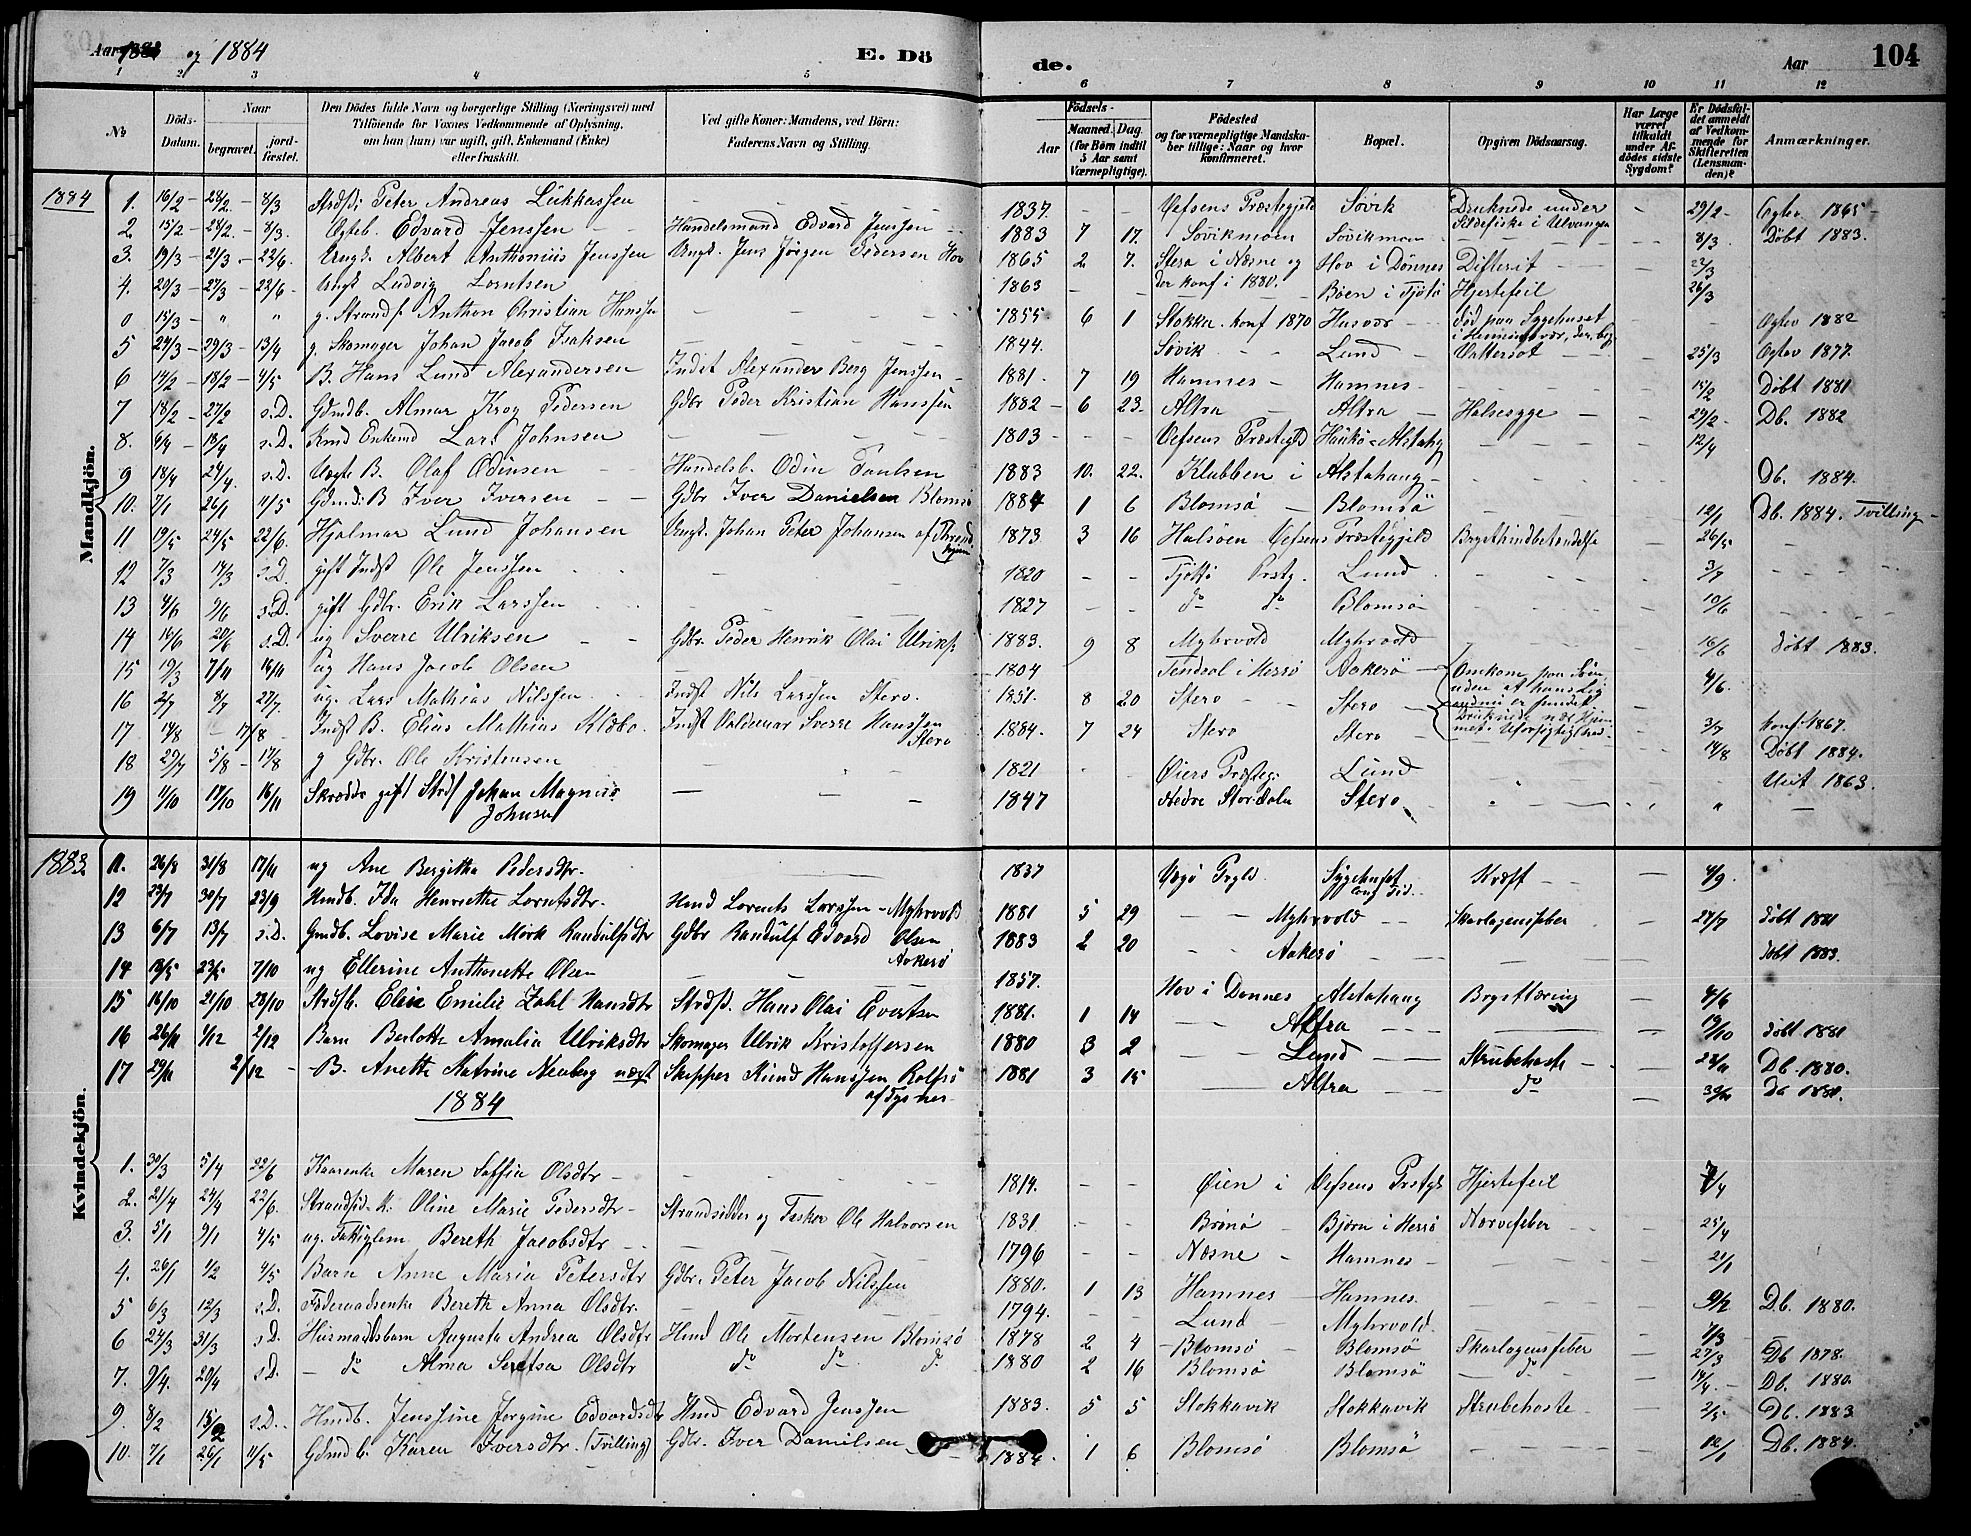 Aar 1883 og 1884 E. Dö de. Aar 104
1 2 3 4 5 6 7 8 9 10 11 12
No
Döds-Datum.
Naar
begravet.
jordfæstet.
Den Dödes fulde Navn og borgerlige Stilling (Næringsvei) med
Tilföiende for Voxnes Vedkommende af Oplysning,
om han (hun) var ugift, gift, Enkemand (Enke)
eller fraskilt.
Ved gifte Koner: Mandens, ved Börn:
Faderens Navn og Stilling.
Födsels-
Aar
Maaned. Dag.
(for Børn indtil
5 Aar samt
Værnepligtige).
Födested
og for værnepligtige Mandskaber tillige: Naar og hvor
konfirmeret.
Bopæl.
Opgiven Dödsaarsag.
Har Læge
været
tilkaldt
under Afdödes sidste
Sygdom?
Er Dödsfaldet anmeldt
af Vedkommende for
Skifteretten
(Lensmanden)?
Anmærkninger.
Mandkjön.
1884 1. 16/2 - 28/2 - 8/3 Strdss. Peter Andreas Lukkassen - - 1837. - - Vefsens Præstegjeld Søvik Druknede under Sildefiske i Ulvangen - 29/2 - Ogtev 1865 -
2 15/2 - 28/2 - 8/3. Ogteb. Edvard Jenssen - Handelsmand Edvard Jenssen 1883 7 17. Søvikmoen Søvikmoen - - 8/3. Døbt 1883.
3. 19/3 - 21/3 - 22/6. Ungk. Albert Anthonius Jenssen Ungk. Jens Jørgen Pedersen Hov 1865 2 7. Stera i Næsne og der konf i 1880. Hov i Dønnes Difterit - - 22/3
4. 20/3 - 27/3 - 22/6 - Ungk Ludvig Lorntsen 1863 - - Bøen i Tjøtø Hjertefeil - 26/3
0 15/3 - " " g. Strands. Anthon Christian Hanssen - - 1855 - 6 1 Stokka. konf 1870 Husvær - død paa Sygehuset i Henningsvær, der beg. - - Ogtev 1882
5 24/3 - 29/3 - 13/4 g. Skomager Johan Jacob Isaksen - - 1844. Søvik - - Lund - Vattersot - 25/3 Ogtev 1877.
6 14/2 - 18/2 - 4/5 B. Hans Lund Alexandersen Indst Alexander Berg Jenssen - 1881. - 7 19 Hamnes - Hamnes - - - 15/2 Døbt 1881
7 18/2 - 27/2 s.D. Gdmdb. Almar Krog Pedersen Gdbr Peder Kristian Hanssen 1882 - 6 23. Altra Altra - Halsesyge - - 29/2 - Db. 1882
8. 6/4 - 13/4 s.D. Kmd Enkemd Lars Johnsen - - 1803 - - - Vefsens Præstegjld Haukø - Alstahg - - 12/4
9 18/4 24/4. s.D. Uægte B. Olaf Odinsen Handelsb. Odin Paulsen 1883 10. 22. Klubben i Alstahaug - - - Db. 1884.
10. 7/1 26/1 11/5 Gdmd: B Iver Iversen - - Gdbr Iver Danielsen Blomsø 1884 1 6 Blomsø - Blomsö - - 12/1 Db. 1884. Tvilling -
11 19/5 24/5 22/6. Hjalmar Lund Johansen Ungk. Johan Peter Johansen af Thrond hjem 1873 3 16 Halsøen Vefsens Præstegjeld Brysthindbetændelse - 26/5
12 7/3 14/3 s.D. gift Indst Ole Jenssen - 1820 - - Tjøttø Prstg. Lund - - 3/7
13 4/6 9/6 s.D. gift Gdbr. Erik Larssen - 1827 - - do do Blomsö - - 10/6
14 16/6 20/6 s.D. ug Sverre Ulriksen - - Gdbr. Peder Henrik Olai Ulriks. 1883. 9 8 Myhrvold Myhrvold - - 16/6 Døbt 1883.
15 19/3 7/11 16/11 ug Hans Jacob Olsen 1804 Tendsol i Herrø Aakerø - Omkom paa Søen uden at hans Lig endnu er fundet 4/6.
16 2/7 8/7 27/7. ug. Lars Mathias Nilssen. Indst Nils Larssen Stero. 1851. 8 20 Stero Stero - Druknede nær Hjemmet. Uforsigtighed - 3/7 konf. 1867.
17 14/8 - 17/8 - Indst B. Elias Mathias Klæbo. Indst Valdemar Sverre Hanssen Stero 1884. 7 24 Stero Stero - 14/8 Døbt 1884.
18 29/7 5/8 - 17/8 g Gdbr. Ole Kristensen 1821 - - Øiers Præsteg: Lund - Viet 1863.
19 11/10 17/10 16/11 Skrædder gift Strds Johan Magnus Johnsen - - 1847 Nedre Stordalen Stero - " " -
Kvindekjön.
1883 11. 26/8 31/8 17/11 ug Ane Bergitha Pedersdtr. 1837 Vægø Prgld. Sygehuset Kræft - - 4/9.
12 23/7 30/7 23/9 Hmdb. Ida Henriette Lorntsdtr. Hmd Lorents Larssen - Myhrvold 1881 5 29 - - Myhrvold - - Skarlagensfeber - 27/7 døbt 1881
13 6/7 13/7 s.D. Gmdb. Lovise Marie Mörk Randulfsdtr Gdbr Randulf Edvard Olsen Aakerø 1883 2 20 - - Aakerø - - døbt 1883.
14 18/5 23/5 7/10 ug Ellerine Anthonette Olsen - - 1857. Hov i Dønnes Alstahaug Brystlæring - 4/6
15 16/10 21/10 28/10 Strdsb. Elise Emilie Zahl Hansdtr Strdss. Hans Olai Evertsen 1881. 1 14 - - Altra - - - 19/10 døbt 1881
16 26/11 4/12 2/12 Barn Berlotte Amalia Ulriksdtr Skomager Ulrik Kristoffersen 1880 3 2 - - Lund - - Strubehoste - - 28/11 Db. 1880.
17 29/11 2/12 - B. Anette Katrine Neuberg uægt Skipper Knud Hanssen Rolfsø af Tysnes - 1881 3 15 - Altra - do - 30/11 Db 1881.
1884
1. 30/3 5/4 22/6 Kaarenke Maren Soffia Olsdtr - - 1814. - - Øien i Vefsens Prstgld Hjertefeil - 7/4
2. 21/4 24/4 22/6. Strandsid. K: Oline Marie Pedersdtr - Strandsidder og Fisker Ole Halvorsen 1831. - - Brønø - Bjørn i Herrø Nervefeber - - 25/4
3. 5/1 9/1 4/5 ug. Fattiglem Bereth Jacobsdtr - - 1796 - - Næsne - Hamnes - - 21/1
4. 26/1 4/2 4/5 Barn Anne Maria Petersdtr Gdbr. Peter Jacob Nilssen 1880. 1 13 Hamnes - Hamnes. - - 9/2 Db. 1880.
5 6/3 12/3 s.D. Føderaadsenke Bereth Anna Olsdtr. - - 1794. Lund - Myhrvold - 7/3
6 24/3 31/3 s.D. Husmandsbarn Augusta Andrea Olsdtr Hmd Ole Mortensen Blomsø 1878 2 4 - Blomsø - Blomsö Skarlagensfeber - 27/3 Db 1878.
7. 9/4. 20/4 s.D. - do Alma Olsdtr do do do 1880 2 16 Blomsö Blomsö - do - 14/4 - Db. 1880.
9. 8/2 15/2 s.D. - Hmdb. Jenssine Jørgine Edvardsdtr Hmd Edvard Jenssen 1883. 5 5 Stokkavik Stokkavik Strubehoste - - 2/5 Db. 1883
10. 7/1 26/1 11/5 Gdmd b. Karen Iversdtr. (Tvilling) Gdbr. Iver Danielsen 1884. 1 6 Blomsø Blomsö - - 12/1 Db. 1884.